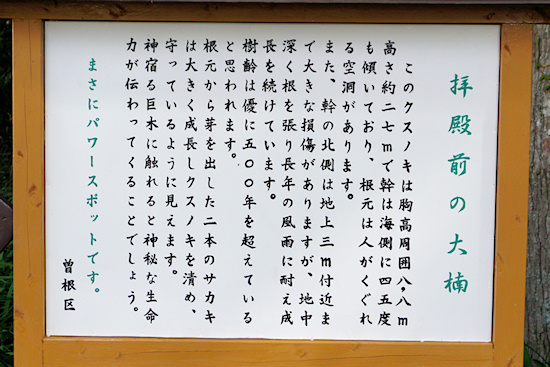 拝殿前の大楠
このクスノキは胸高周囲八・八m
高さ約二七mで幹は海側に四五度
も傾いており、根元は人がくぐれ
る空洞があります。
また、幹の北側は地上三m付近ま
で大きな損傷がありますが、地中
深く根を張り長年の風雨に耐え成
長を続けています。
樹齢は優に五〇〇年を超えている
と思われます。
根元から芽を出した二本のサカキ
は大きく成長しクスノキを清め、
守っているように見えます。
神宿る巨木に触れると神秘な生命
力が伝わってくることでしょう。
まさにパワースポットです。
曽根区